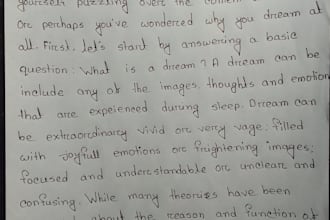 yourself puzzling over the content
Or perhaps you've wondered why you dream at
all. First, let's start by answering a basic
question: What is a dream? A dream can be
include any ob the images, thoughts and emotion
that are expeienced during sleep. Dream can
be extraordinary vivid or very vage; filled
with joyfull emotions or frightening images;
focused and understandable or unclear and
confusing. While many theories have been
about the reason and function of